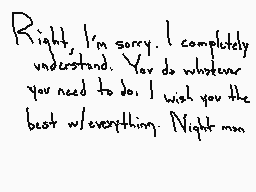 Right, I'm sorry. I completely
understand. You do whatever
you need to do. I wish you the
best w/everything. Night man